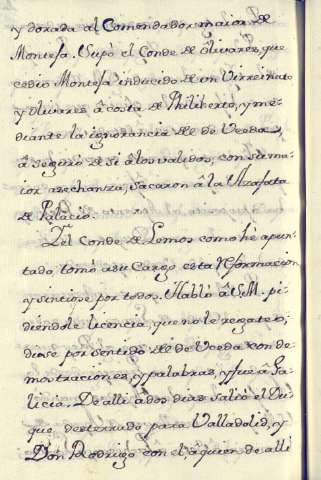 y dorada al Comendador maior de
Montesa. Supo el Conde de Olivares, que
cedio Montesa inducido de un Virreinato
y Olivares â costa de Philiberto, y me-
diante la ignorancia del de Uceda,
â seguro de si â los validos, con su ma-
ior asechanza, sacaron â la Azafata
de Palacio.
Y el Conde de Lemos como hê apun-
tado, tomò a su Cargo esta reformacion
y sintiose por todos. Hablò â S.M. pi-
diendole licencia, que no le regateò;
diose por sentido del de Uceda con de-
mostraciones, y palabras, y fue â Ga-
licia. De alli ados dias saliò el Du-
que desterrado para Valladolid, y
Don Rodrigo con el, aquien de alli